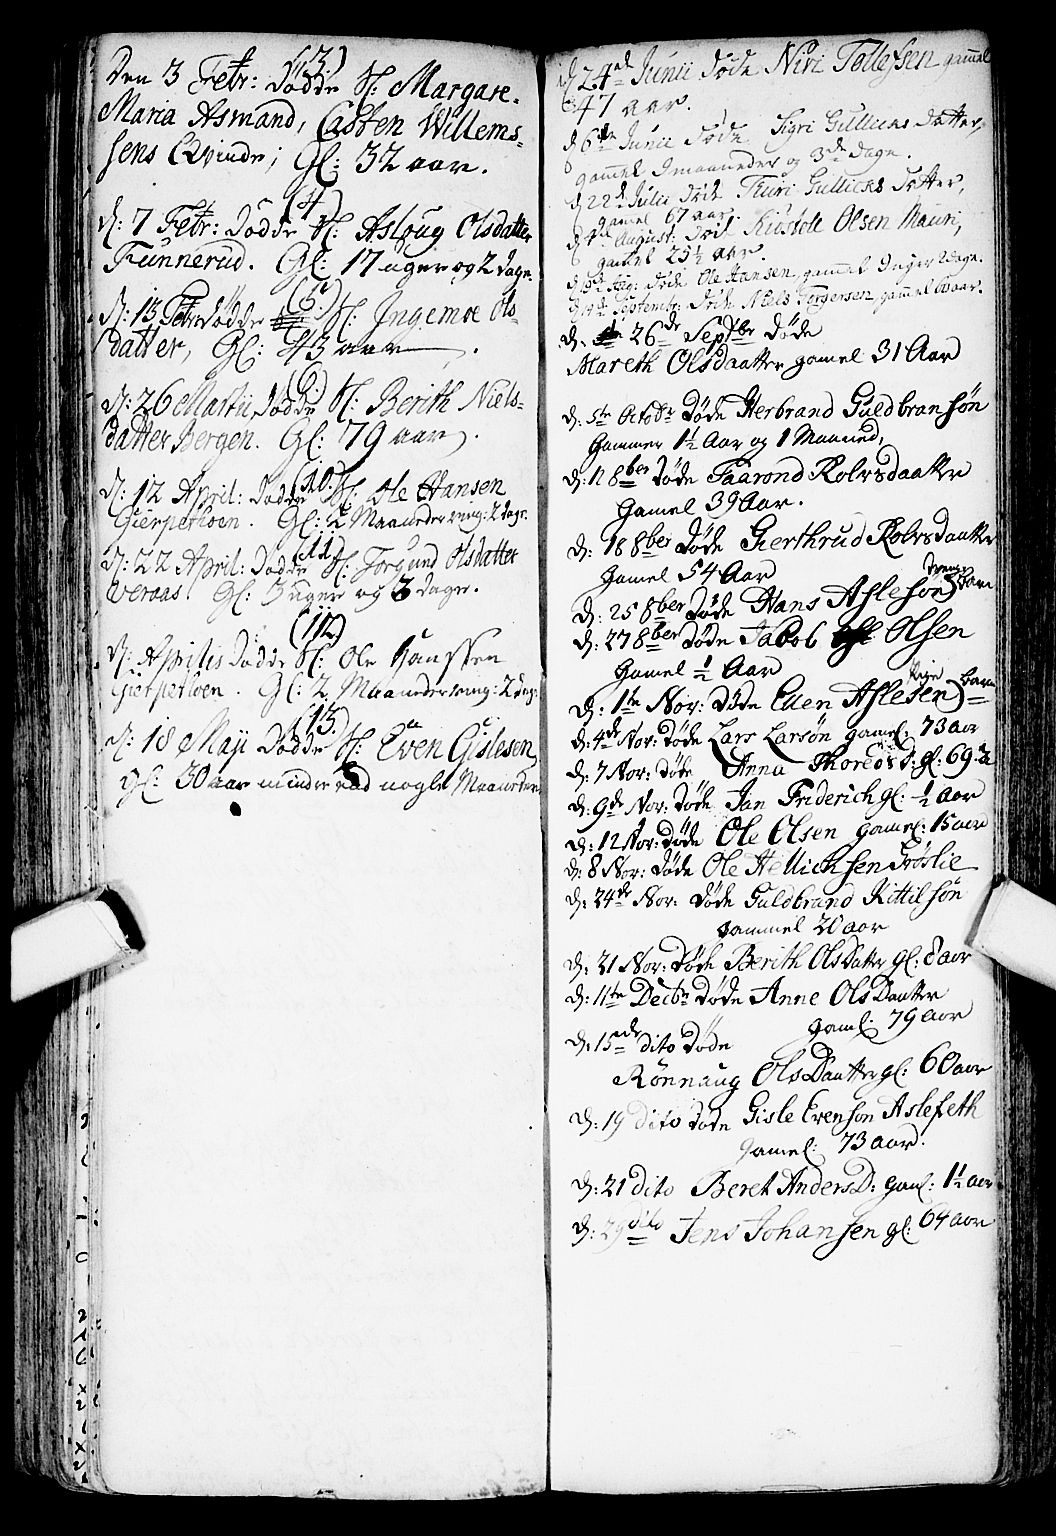 (3)
Den 3 Febr: Dødde Sl: Margare-
Maria Asmand, Casten Willems-
sens Qvinde; Gl: 32 aar.
(4)
D: 7 Febr: Dødde Sl: Aslaug Olsdatter
Funnerud. Gl: 17 uger og 2 dage.
(5)
D: 13 Febr Dødde Sl: Ingemoe Ols-
datter, Gl: 43 aar.
(6)
D: 26 Martii Dødde Sl: Berith Niels-
datter Bergen. Gl: 79 aar.
(10.)
D: 12 April: Dødde Sl: Ole Hansen
Gierperhoen. Gl: 2 Maaneder ming: 2 dage.
(11)
D: 22 April: Dødde Sl: Jorgund Olsdatter
Veraas. Gl: 3 uger og 3 dage.
(12)
D: Aprilis Dødde Sl: Ole Hanssen
Gierperhoen. Gl: 2 Maaneder ming: 2 dage
(13.)
D: 18 Maji Dødde Sl: Even Gislesen
gl: 30 aar mindre end nogle Maaneder
d 24de Junii døde Niri Tollefsen gammel
47 aar.
d 6te Junii døde Sigri Gullichs datter,
gammel 9 maaneder og 3de dage.
d 22de Julii døde Thuri Gullichs datter,
gamel 67 aar.
August: døde Kiostolf Olsen Mauri,
gamel 25½ aar.
Aug: døde Ole Hansen gammel 9 uger 2 dage.
Septembr døde Niels Torgersen, gammel 60 aar.
d: 26de Septbr døde
Mareth Olsdaatter gamel 31 Aar
d: 5te Octobr Døde Herbrand Guldbransøn
Gammer 1½ Aar og 1 Maaned,
d: 11 8ber døde Taarond Rolvsdaatter
Gamel 39 Aar.
d: 18 8ber Døde Gierthrud Rolvsdaatter
Gamel 54 Aar
d: 25 8ber døde Hans Aslesøn drenge Barn
d: 27 8ber døde Jacob Olsen
Gamel ½ Aar
d: 1te Nov: Døde Eilen Aslesen Pige barn
d: 4de Nov: døde Lars Larsøn gamel: 73 aar
d: 7 Nov: døde Anna Thoreds D: gl: 69 a
d: 9de Nov: døde Jan Friderich gl: ½ aar
d: 12 Nov: døde Ole Olsen gamel: 15 aar
d: 8 Nov: døde Ole Hellichsen Frøslie
d: 24de Nov: døde Guldbrand Kittilsøn
Gammel 20 aar
d: 21 Nov: Døde Berith OlsDatter gl: 8 aar
d: 11te Decbr døde Anne OlsDaatter
gaml: 79 aar
d: 15de dito døde
Rønnaug OlsDaatter gl: 60 aar
d: 19 dito døde Gisle Evensøn Aslefeth
gamel: 73 aar.
d: 21 dito Beret Anders D: gaml: 1½ aar
d: 29 dito Jens Johansen gl: 64 aar